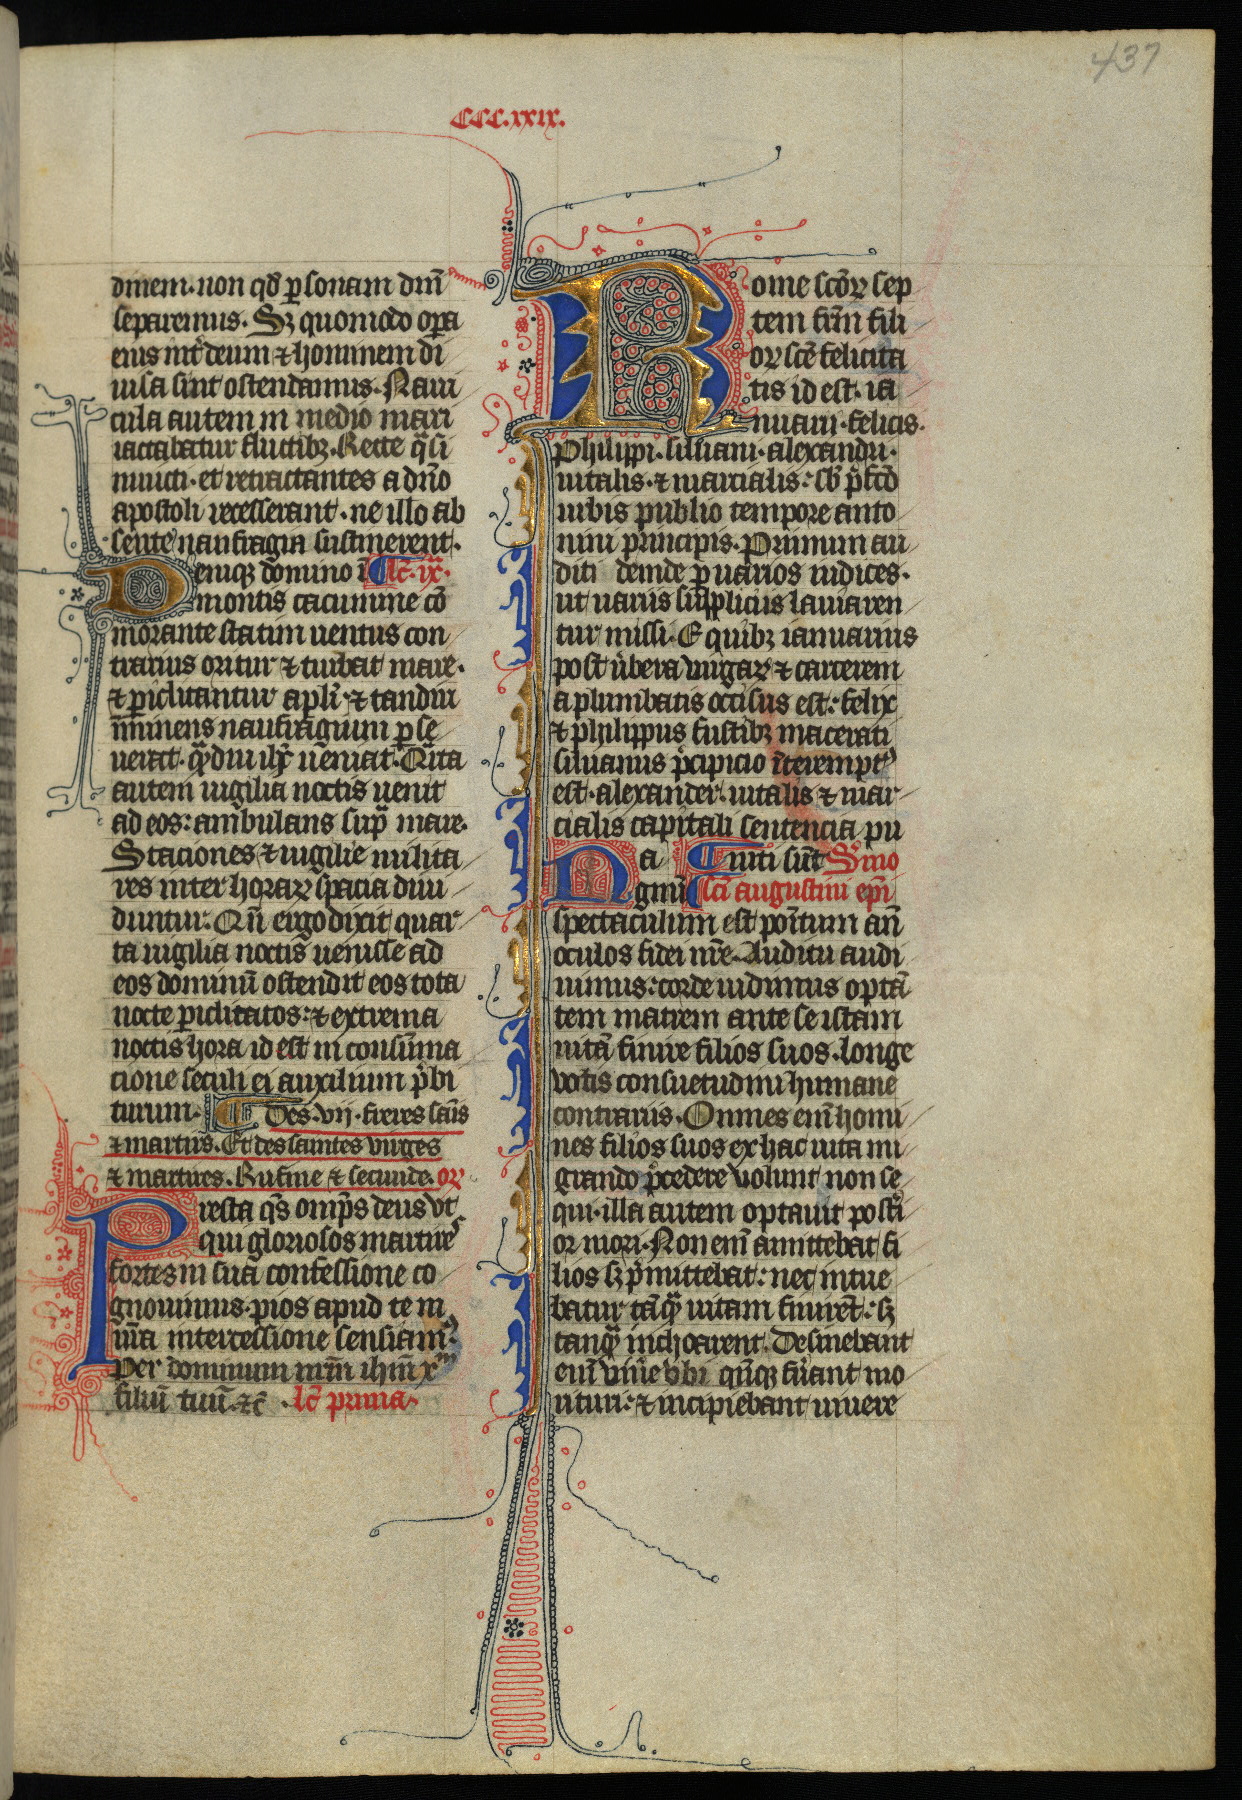 437
CCC.xxix.
dinem. non qđ ꝑsonam dnī
separemus. Sꝫ quomodo oꝑa
eius int̄ deum ⁊ hominem di
uisa sint ostendamus. Naui
cula autem in medio mari
iactabatur fluctibꝫ. Recte q̄si
inuiti. et retractantes a dn̄o
apostoli recesserant. ne illo ab
sente naufragia sustinerent.
Denique domino ī lc̄. ix.
montis cacumine cō
morante statim uentus con
trarius oritur ⁊ turbat mare.
⁊ ꝑiclitantur apl̄i. ⁊ tandiu
īminens naufragium ꝑse
uerat. q̄ꝫdiu ihc̄ ueniat. Q̄rta
autem uigilia noctis uenit
ad eos: ambulans supꝰ mare.
Staciones ⁊ uigilie milita
res inter horaꝝ spacia diui
duntur. Qn̄ ergo dixit quar
ta uigilia noctis uenisse ad
eos dominū ostendit eos tota
nocte ꝑiclitatos: ⁊ extrema
noctis hora id est in consūma
cione seculi ei auxilium p̄bi
turum. Des. vij. freres sains
⁊ martirs. Et des saintes virges
⁊ martires. Rufine ⁊ secunde. or̄
Presta qs̄ omp̄s deus vt
qui gloriosos martires
fortes in sua confessione co
gnouimus. pios apud te in
nr̄a intercessione senciam⁹.
Per dominum nr̄m ihm̄ xm̄
filiū tuū. ⁊c̄. lc̄ prima.
Rome sc̄oꝝ sep
tem fr̄m fili
oꝝ sc̄e felicita
tis id est. ia
nuarii. felicis.
Philippi. siluani. alexandri.
uitalis. ⁊ marcialis: sb̄ p̄fc̄o
urbis publio tempore anto
nini principis. Primum au
diti deinde ꝑ uarios iudices.
ut uariis suppliciis laniaren
tur missi. E quibꝫ ianuarius
post ūbera uirgaꝝ ⁊ carcerem
a plumbatis occisus est: felix
⁊ philippus fustibꝫ macerati
siluanus p̄cipicio īterempt⁹
est. alexander. uitalis ⁊ mar
cialis capitali sentencia pu
niti sūt Sm̄o
sc̄i augustini ep̄i
Magnū
spectaculum est positum an̄
oculos fidei nr̄e. Auditu audi
uimus: corde uidimus optā
tem matrem ante se istam
uitā finire filios suos. longe
votis consuetudini humane
contrariis. Omnes eni͂ homi
nes filios suos ex hac uita mi
grando p̄cedere volunt non se
qui. illa autem optauit posti
or mori. Non eni͂ amittebat fi
lios sꝫ p̄mittebat: nec intue
batur tāq̄ꝫ uitam finirēt: sꝫ
tanq̄ꝫ inchoarent. Desinebant
eni͂ viuere vbi qn̄qꝫ fuerant mo
rituri: ⁊ incipiebant uiuere